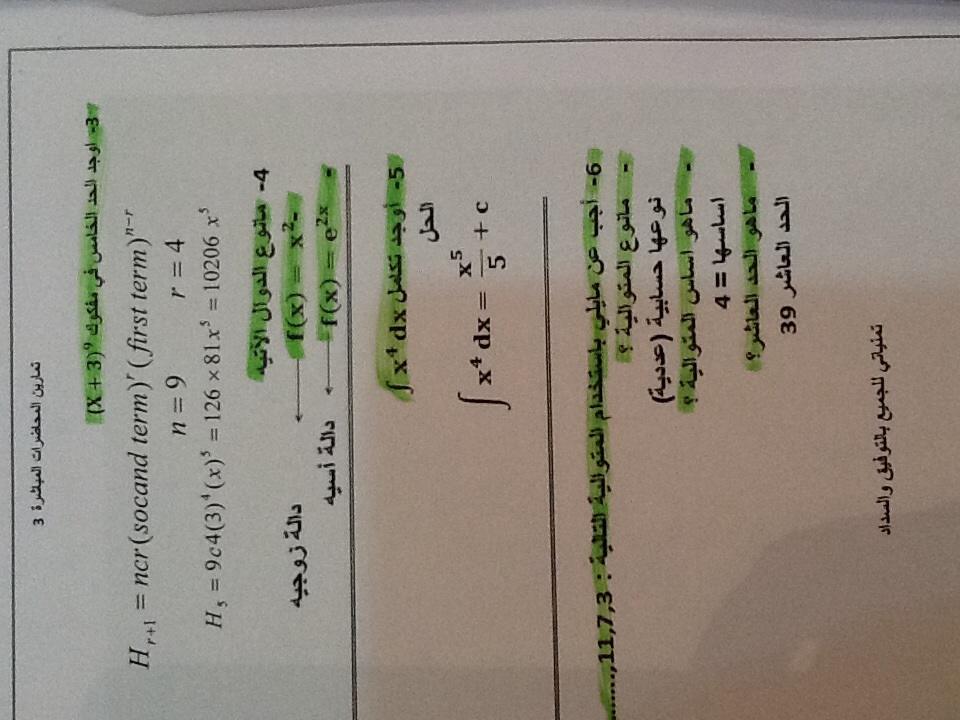 تمارين المحاضرات المباشرة 3
3- اوجد الحد الخامس في مفكوك (X + 3)⁹
H_{r+1} = ncr(socand term)^r (first term)^{n-r}
n = 9 r = 4
H_5 = 9c4(3)^4(x)^5 = 126 × 81x^5 = 10206 x^5
4- مانوع الدوال الآتيه
- f(x) = x² دالة زوجيه
- f(x) = e^{2x} دالة أسيه
5- أوجد تكامل ∫ x⁴ dx
الحل
∫ x⁴ dx = x⁵/5 + c
6- أجب عن مايلي باستخدام المتوالية التالية : 11,7,3,.......
- مانوع المتوالية ؟
نوعها حسابية (عددية)
- ماهو اساس المتوالية ؟
اساسها = 4
- ماهو الحد العاشر؟
الحد العاشر 39
تمنياتي للجميع بالتوفيق والسداد